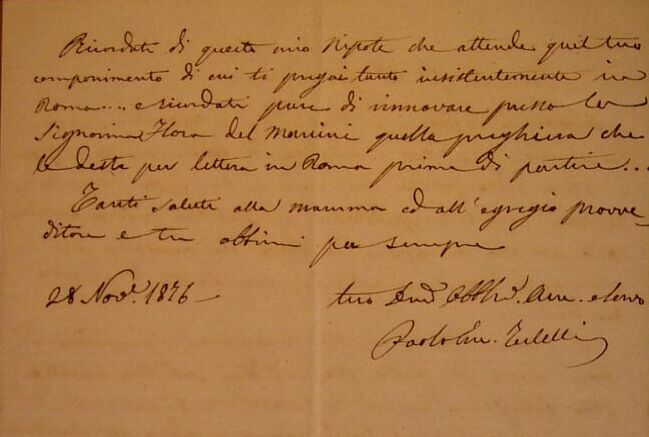 Ricordati di questo mio Nipote che attende quel tuo
componimento di cui ti pregai tanto insistentemente in
Roma.... e ricordati pure di rinnovare presso la
Signorina Flora del Mancini quella preghiera che
le deste per lettera in Roma prima di partire...
Tanti saluti alla mamma ed all'egregio provve-
ditore e tu abbimi per sempre
28 Nov. 1876 – tuo
Paolo Em.